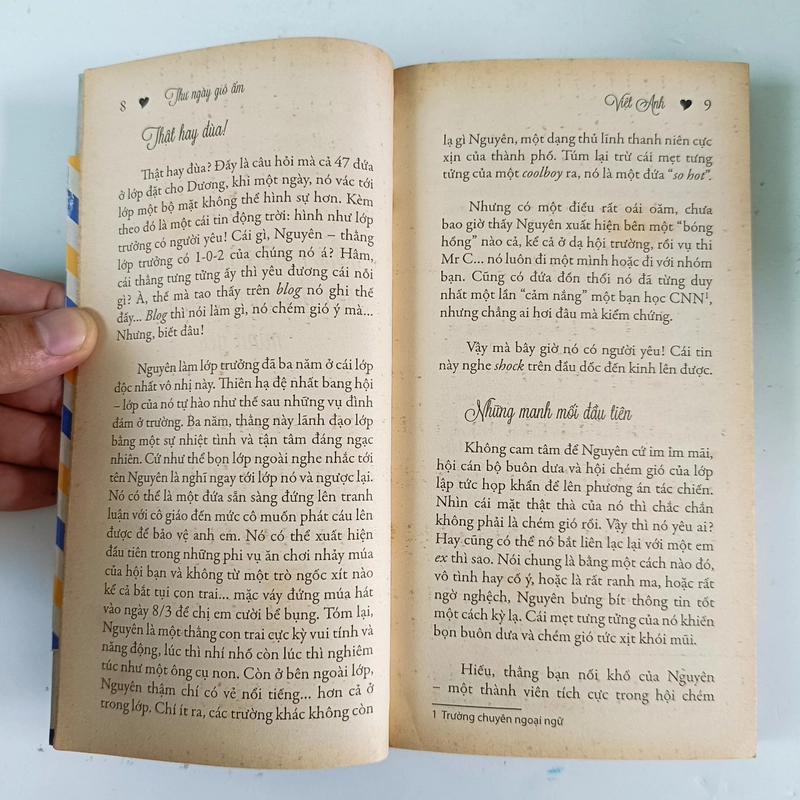 8 ♥ Thư ngày gió ấm
Thật hay đùa!
Thật hay đùa? Đấy là câu hỏi mà cả 47 đứa
ở lớp đặt cho Dương, khi một ngày, nó vác tới
lớp một bộ mặt không thể hình sự hơn. Kèm
theo đó là một cái tin động trời: hình như lớp
trưởng có người yêu! Cái gì, Nguyên – thằng
lớp trưởng có 1-0-2 của chúng nó á? Hâm,
cái thằng tưng tửng ấy thì yêu đương cái nỗi
gì? À, thế mà tao thấy trên blog nó ghi thế
đấy... Blog thì nói làm gì, nó chém gió ý mà...
Nhưng, biết đâu!
Nguyên làm lớp trưởng đã ba năm ở cái lớp
độc nhất vô nhị này. Thiên hạ đệ nhất bang hội
– lớp của nó tự hào như thế sau những vụ đình
đám ở trường. Ba năm, thằng này lãnh đạo lớp
bằng một sự nhiệt tình và tận tâm đáng ngạc
nhiên. Cứ như thể bọn lớp ngoài nghe nhắc tới
tên Nguyên là nghĩ ngay tới lớp nó và ngược lại.
Nó có thể là một đứa sẵn sàng đứng lên tranh
luận với cô giáo đến mức cô muốn phát cáu lên
được để bảo vệ anh em. Nó có thể xuất hiện
đầu tiên trong những phi vụ ăn chơi nhảy múa
của hội bạn và không từ một trò ngốc xít nào
kể cả bắt tụi con trai... mặc váy đứng múa hát
vào ngày 8/3 để chị em cười bể bụng. Tóm lại,
Nguyên là một thằng con trai cực kỳ vui tính và
năng động, lúc thì nhí nhố còn lúc thì nghiêm
túc như một ông cụ non. Còn ở bên ngoài lớp,
Nguyên thậm chí có vẻ nổi tiếng... hơn cả ở
trong lớp. Chí ít ra, các trường khác không còn
Việt Anh ♥ 9
lạ gì Nguyên, một dạng thủ lĩnh thanh niên cực
xịn của thành phố. Túm lại trừ cái mẹt tưng
tửng của một coolboy ra, nó là một đứa “so hot”.
Nhưng có một điều rất oái oăm, chưa
bao giờ thấy Nguyên xuất hiện bên một “bóng
hồng” nào cả, kể cả ở dạ hội trường, rồi vụ thi
Mr C... nó luôn đi một mình hoặc đi với nhóm
bạn. Cũng có đứa đồn thổi nó đã từng duy
nhất một lần “cảm nắng” một bạn học CNN¹,
nhưng chẳng ai hơi đâu mà kiểm chứng.
Vậy mà bây giờ nó có người yêu! Cái tin
này nghe shock trên đầu dốc đến kinh lên được.
Những manh mối đầu tiên
Không cam tâm để Nguyên cứ im ỉm mãi,
hội cán bộ buôn dưa và hội chém gió của lớp
lập tức họp khẩn để lên phương án tác chiến.
Nhìn cái mặt thật thà của nó thì chắc chắn
không phải là chém gió rồi. Vậy thì nó yêu ai?
Hay cũng có thể nó bắt liên lạc lại với một em
ex thì sao. Nói chung là bằng một cách nào đó,
vô tình hay cố ý, hoặc là rất ranh ma, hoặc rất
ngờ nghệch, Nguyên bưng bít thông tin tốt
một cách kỳ lạ. Cái mẹt tưng tửng của nó khiến
bọn buôn dưa và chém gió tức xịt khói mũi.
Hiếu, thằng bạn nối khố của Nguyên
– một thành viên tích cực trong hội chém
1 Trường chuyên ngoại ngữ